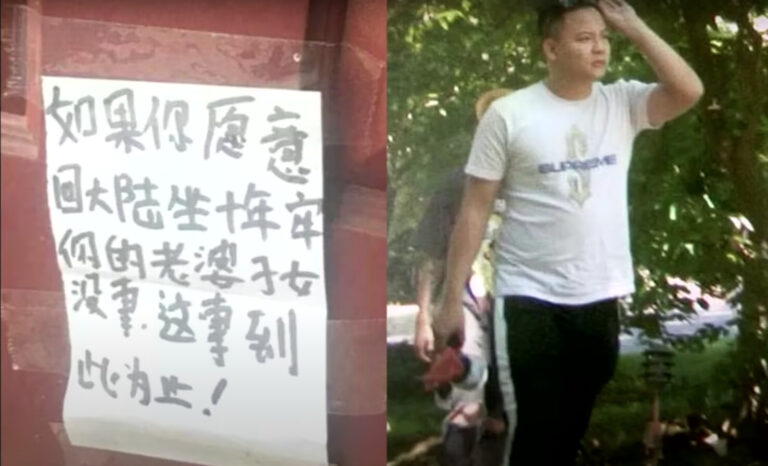 如果你愿意
回大陆坐十年牢
你的老婆子女
没事.这事到
此为止!
SUPREME